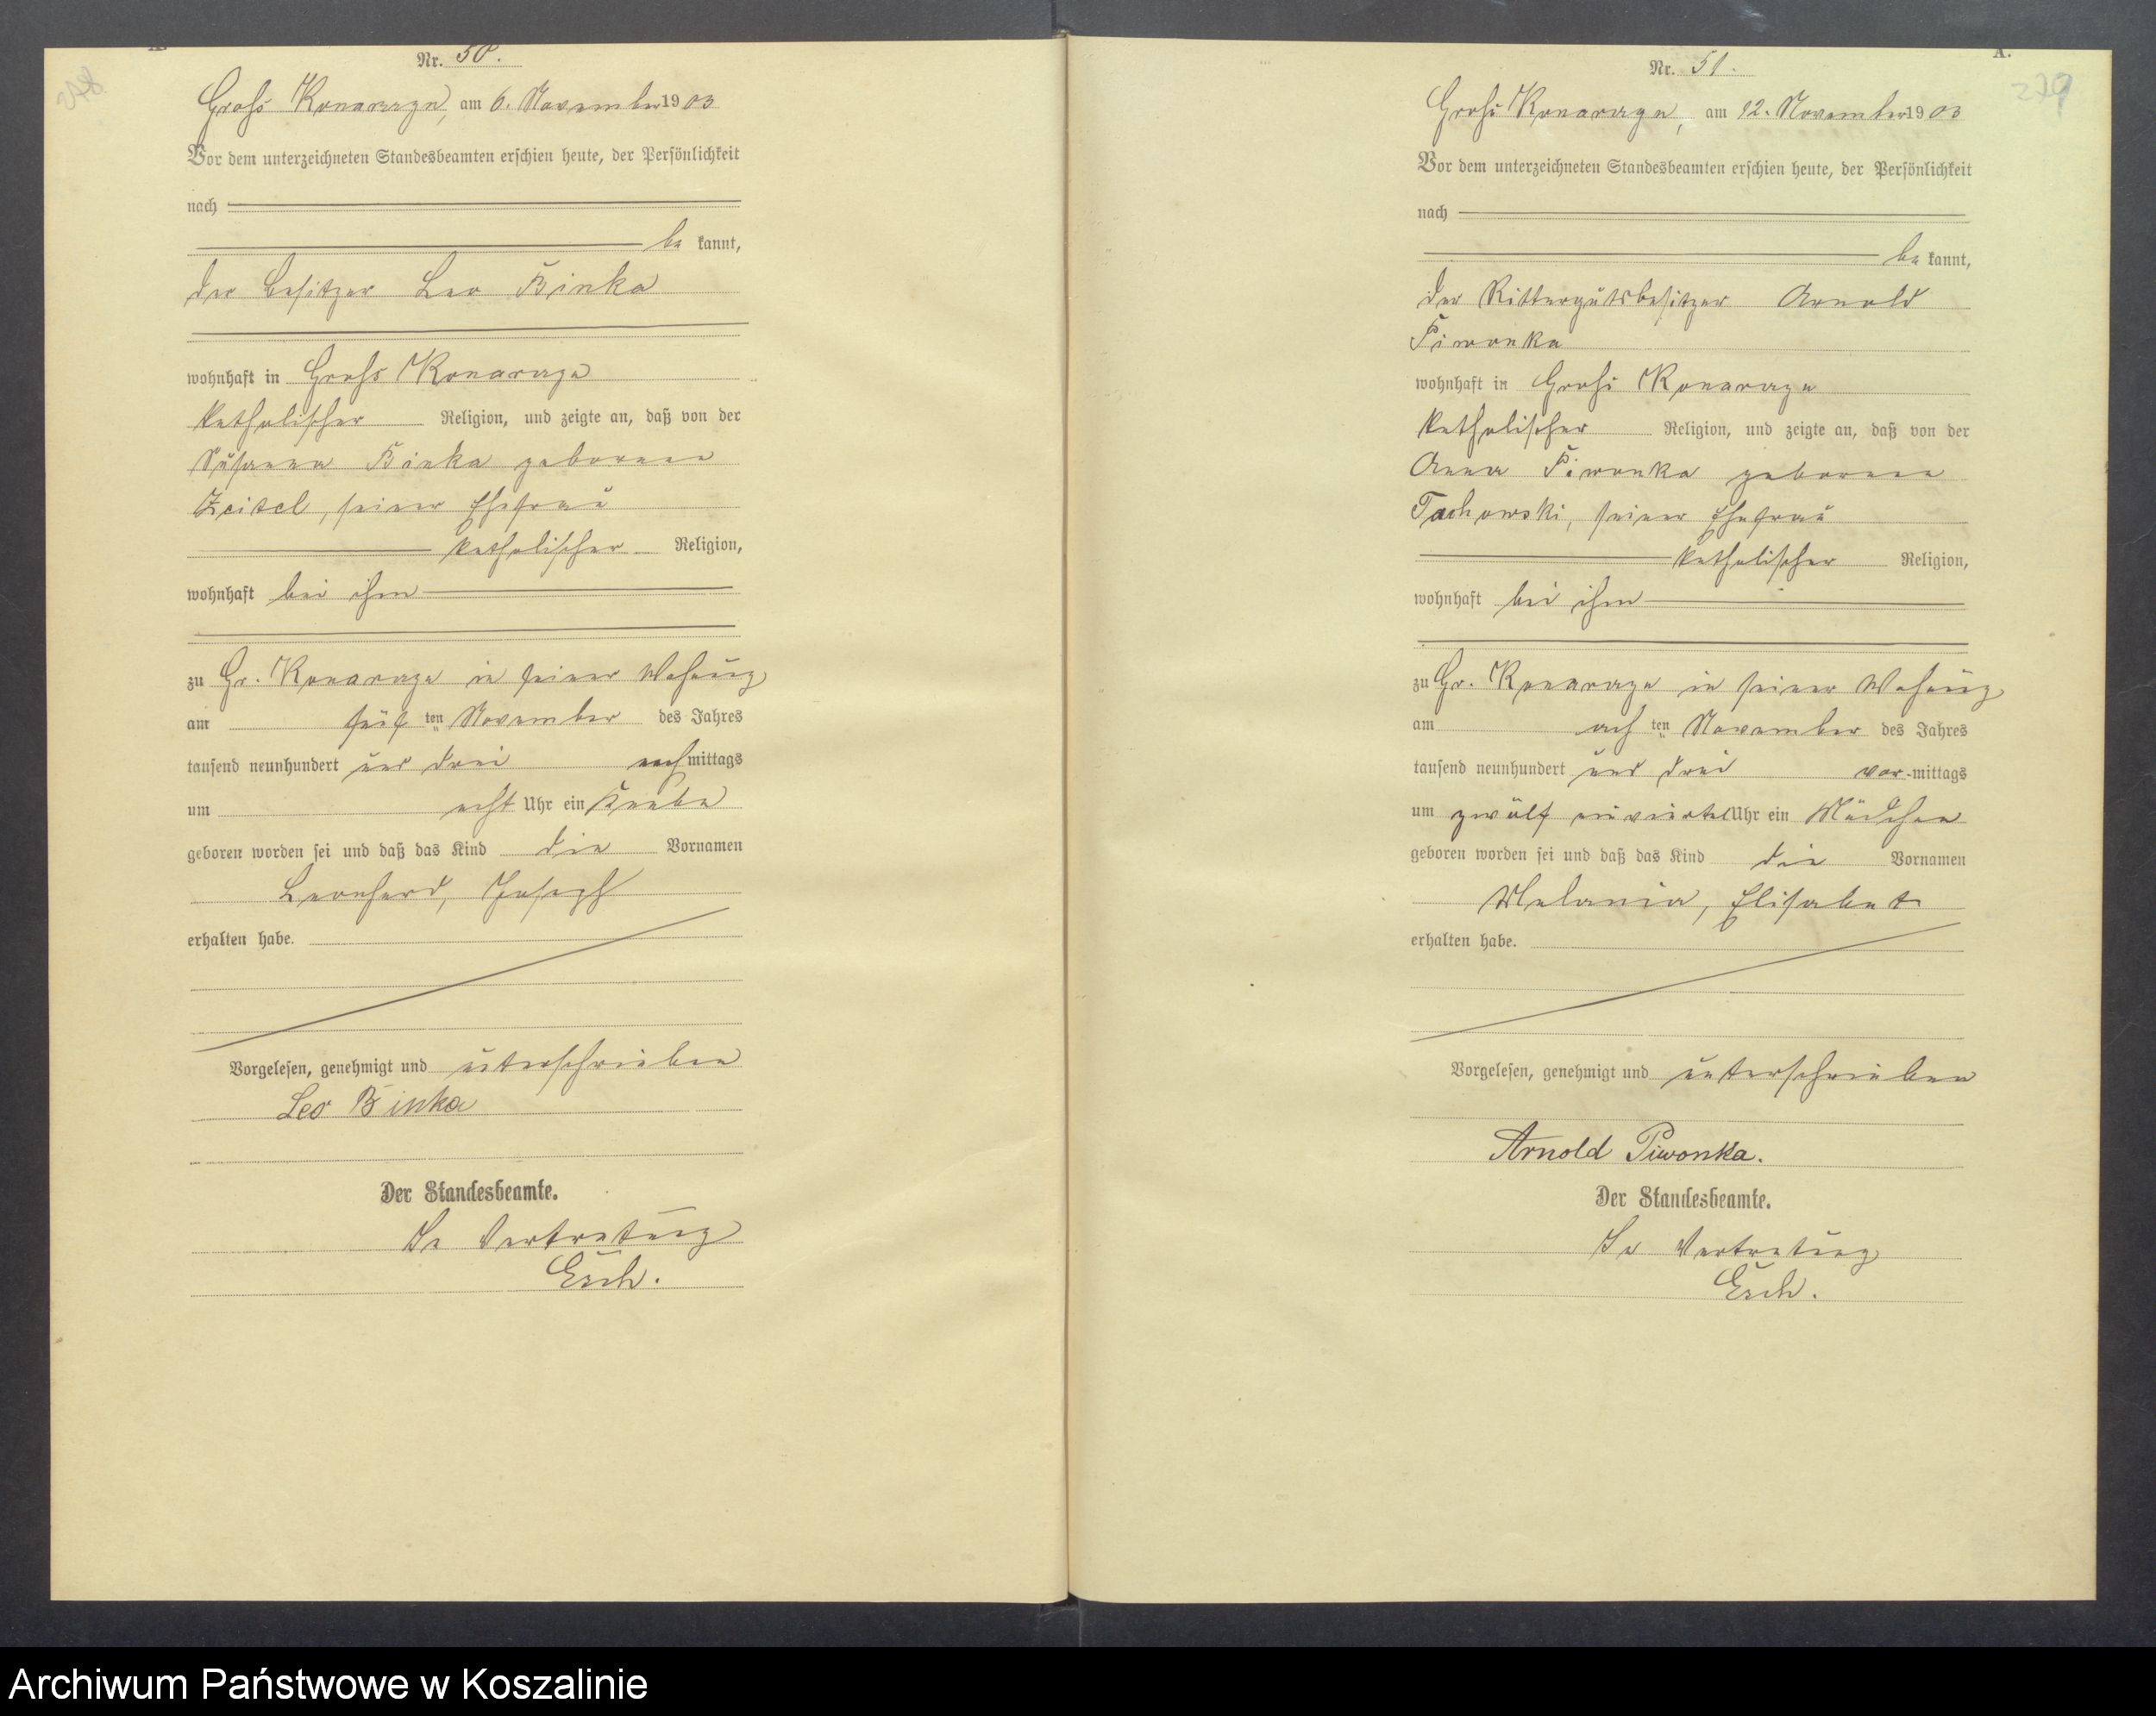 278
Nr. 50.
Groß Konarczyn, am 6. November 1903
Vor dem unterzeichneten Standesbeamten erschien heute, der Persönlichkeit
nach
be kannt,
der Besitzer Leo Binka
wohnhaft in Groß Konarczyn
katholischer Religion, und zeigte an, daß von der
Susanna Binka geborene
Zeitel, seiner Ehefrau
katholischer Religion,
wohnhaft bei ihm
zu Gr. Konarczyn in seiner Wohung
am fünf ten November des Jahres
tausend neunhundert und drei nachmittags
um acht Uhr ein Knabe
geboren worden sei und daß das Kind die Vornamen
Leonhard, Joseph
erhalten habe.
Vorgelesen, genehmigt und unterschrieben
Leo Binka
Der Standesbeamte.
In Vertretung
Esch.
A.
279
Nr. 51.
Groß Konarczyn, am 12. November 1903
Vor dem unterzeichneten Standesbeamten erschien heute, der Persönlichkeit
nach
be kannt,
der Rittergutsbesitzer Arnold
Piwonka
wohnhaft in Groß Konarczyn
katholischer Religion, und zeigte an, daß von der
Anna Piwonka geborene
Tachowski, seiner Ehefrau
katholischer Religion,
wohnhaft bei ihm
zu Gr. Konarczyn in seiner Wohung
am ach ten November des Jahres
tausend neunhundert und drei vor-mittags
um zwölf einviertel Uhr ein Mädchen
geboren worden sei und daß das Kind die Vornamen
Melania, Elisabet
erhalten habe.
Vorgelesen, genehmigt und unterschrieben
Arnold Piwonka.
Der Standesbeamte.
In Vertretung
Esch.
Archiwum Państwowe w Koszalinie